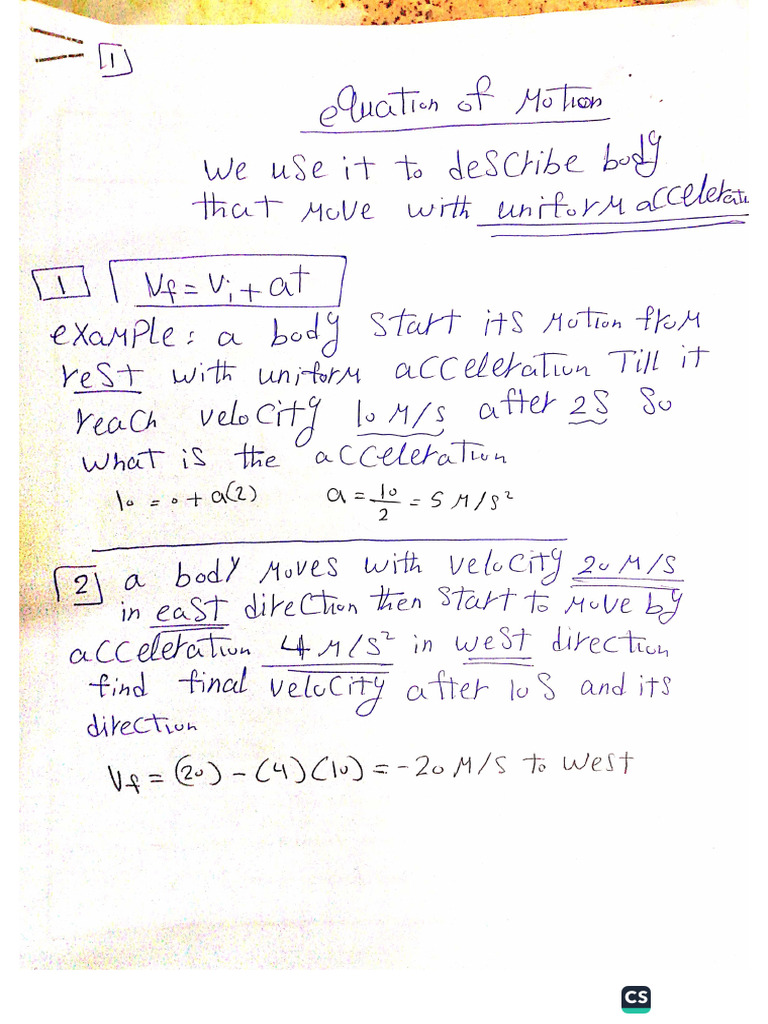 1
equation of Motion
We use it to describe body
that move with uniform accelerati
1 Vf = Vi + at
example: a body start its motion from
rest with uniform acceleration Till it
reach velocity 10 M/S after 2S So
what is the acceleration
10 = 0 + a(2) a = 10/2 = 5 M/S²
2 a body moves with velocity 20 M/S
in east direction then start to move by
acceleration 4 M/S² in west direction
find final velocity after 10 S and its
direction
Vf = (20) - (4)(10) = -20 M/S to west
CS